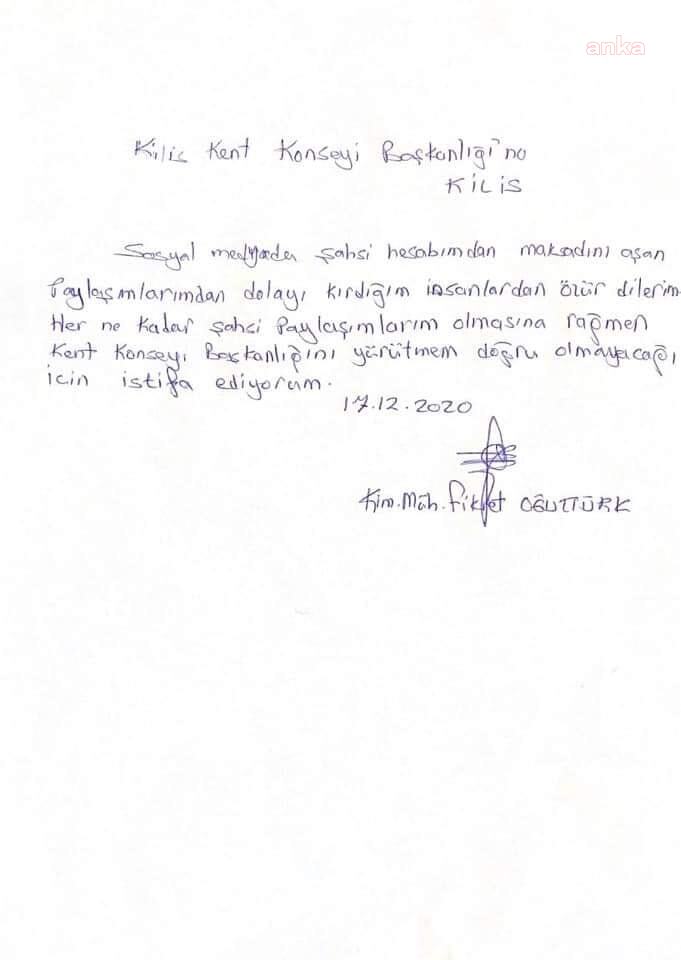 anka
Kilis Kent Konseyi Başkanlığı'na
KİLİS
Sosyal medyada şahsi hesabımdan maksadını aşan
Paylaşımlarımdan dolayı kırdığım insanlardan özür dilerim
Her ne kadar şahsi Paylaşımlarım olmasına rağmen
Kent Konseyi Başkanlığını yürütmem doğru olmayacağı
için istifa ediyorum.
17.12.2020
Kim.Müh. Fikret OĞUTTÜRK